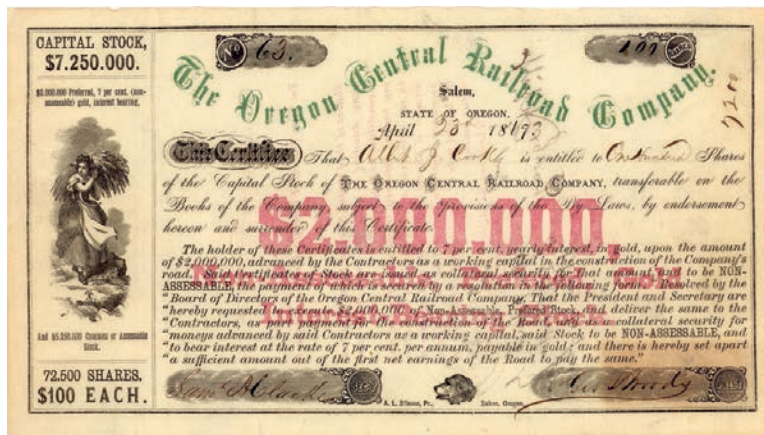 CAPITAL STOCK,
$7.250.000.
$2.000.000 Preferred, 7 per cent. (non-
assessable) gold, interest bearing.
And $5.250.000 Common or Assessable
Stock.
72.500 SHARES.
$100 EACH.
No 63.
100
The Oregon Central Railroad Company.
Salem,
STATE OF OREGON,
April 23d 1873
7200
This Certifies That Albt J. Cooke is entitled to One Hundred Shares
of the Capital Stock of THE OREGON CENTRAL RAILROAD COMPANY, transferable on the
Books of the Company subject to the provisions of the By Laws, by endorsement
hereon and surrender of this Certificate.
$2,000,000,
The holder of these Certificates is entitled to 7 per cent. yearly interest, in gold, upon the amount
of $2,000,000, advanced by the Contractors as a working capital in the construction of the Company's
road. Said Certificates of Stock are issued as collateral security for that amount and to be NON-
ASSESSABLE, the payment of which is secured by a resolution in the following form: "Resolved by the
"Board of Directors of the Oregon Central Railroad Company, That the President and Secretary are
"hereby requested to execute $2,000,000 of Non-Assessable, Preferred Stock, and deliver the same to the
"Contractors, as part payment for the construction of the Road, and as a collateral security for
"moneys advanced by said Contractors as a working capital, said Stock to be NON-ASSESSABLE, and
"to bear interest at the rate of 7 per cent. per annum, payable in gold; and there is hereby set apart
"a sufficient amount out of the first net earnings of the Road to pay the same."
Saml A Clarke
SEC'Y
A. L. Stinson, Pr., Salem, Oregon.
Geo L Woods
PRES'T